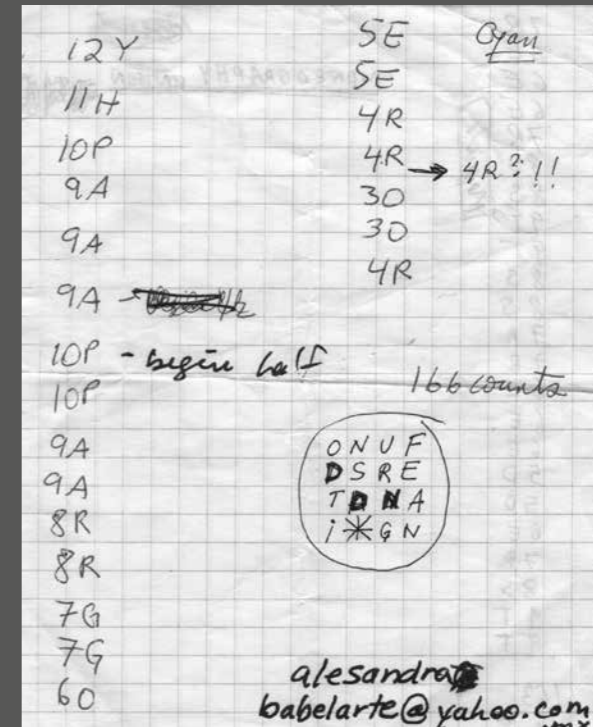 12Y
11H
10P
9A
9A
9A →
10P - begin half
10P
9A
9A
8R
8R
7G
7G
6O
5E
5E
4R
4R → 4R?!!
3O
3O
4R
Cyan
166 counts
ONUF
DSRE
TDNA
i*GN
alesandra
babelarte@yahoo.com
.mx